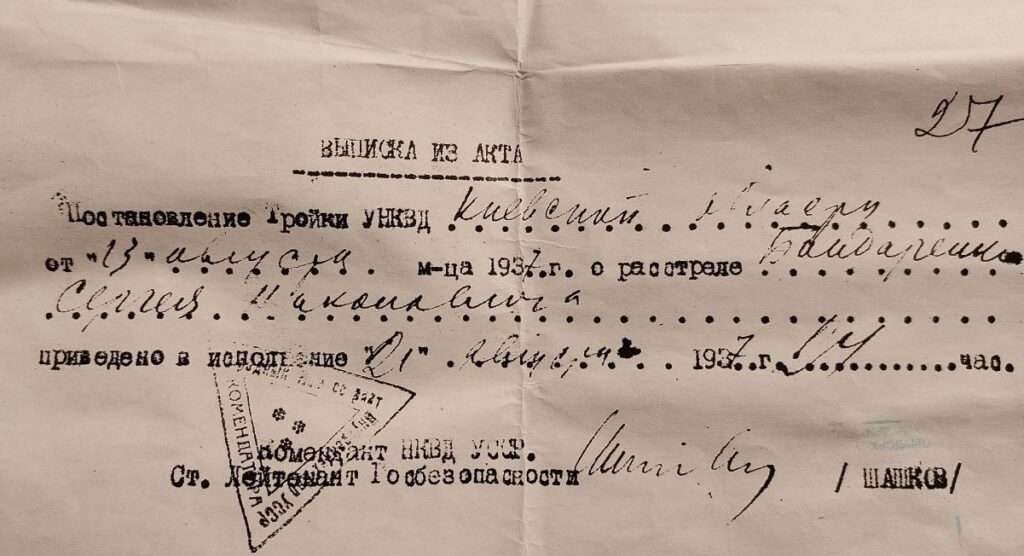 27
ВЫПИСКА ИЗ АКТА
Постановление Тройки УНКВД Киевской
от "13" августа м-ца 1937.г. о расстреле Бондаренко
Сергея
приведено в исполнение "21" августа 1937.г. 24 час.
Комендант НКВД УССР.
Ст. Лейтенант Госбезопасности /ШАШКОВ/
КОМЕНДАТУРА
УССР